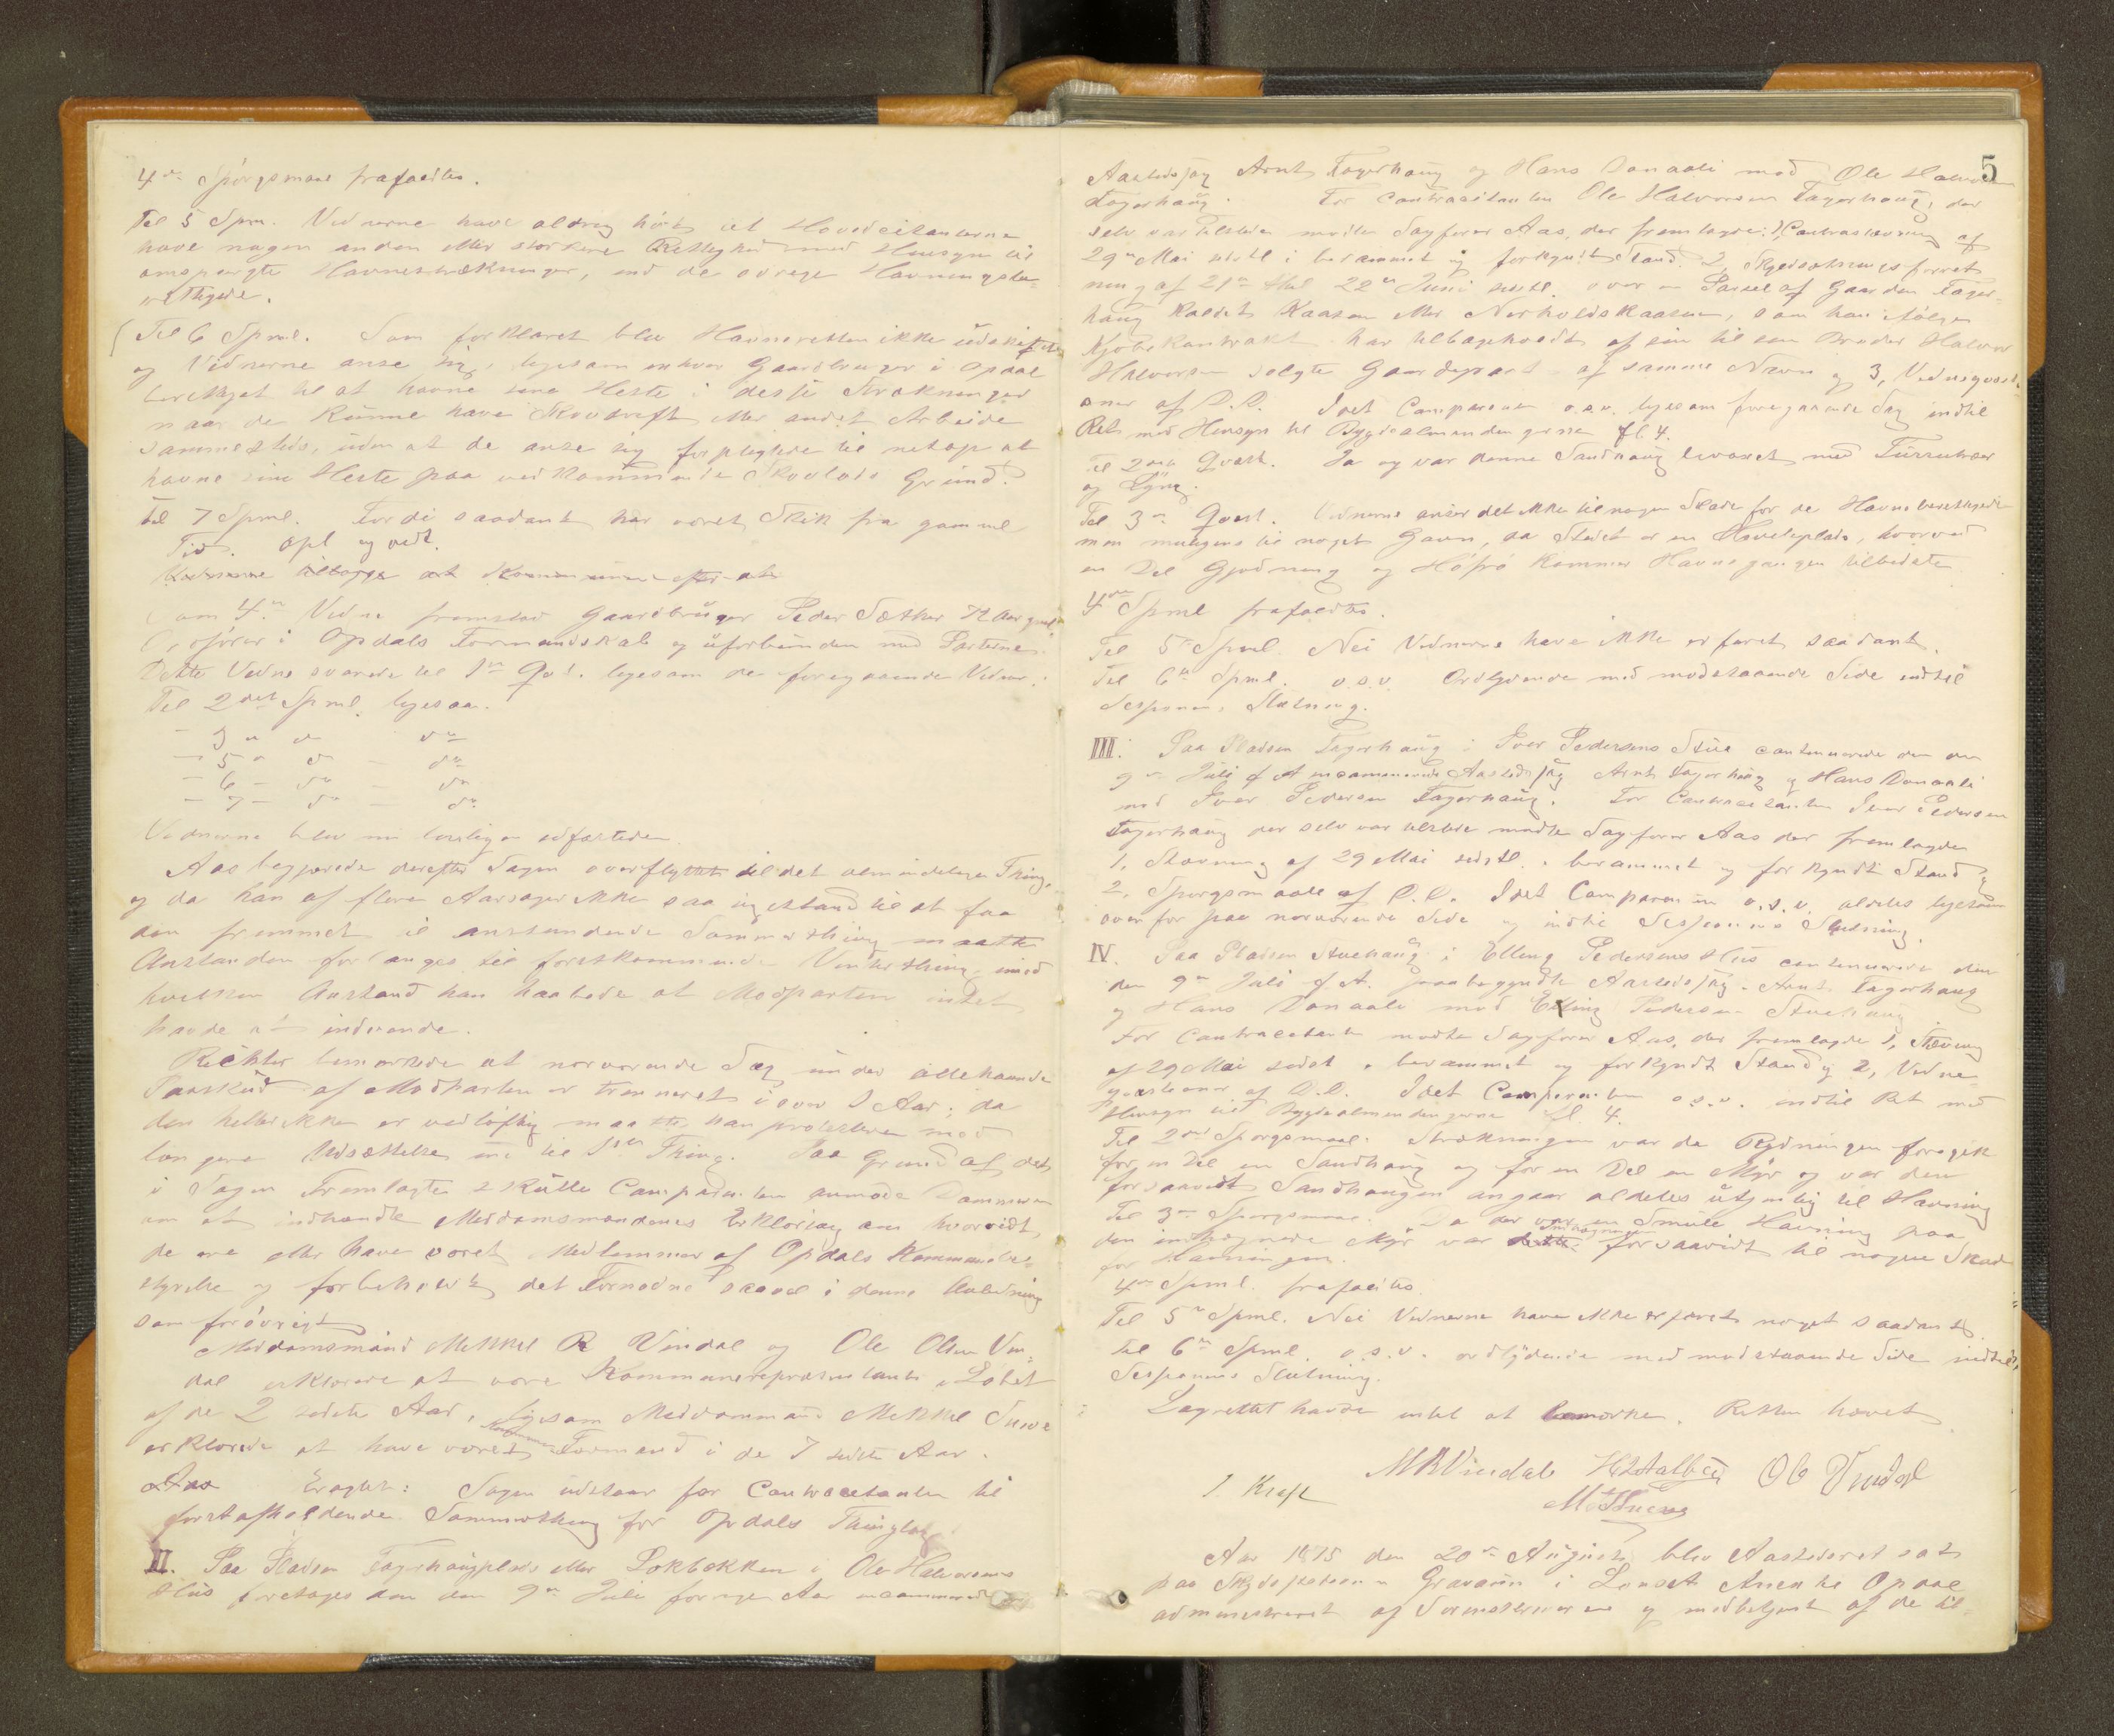 4de Spørgsmaal frafaldtes.
Til 5 Spm. Vidnerne have aldrig hørt at Hovedcitanterne
have nogen anden eller stærkere Rettighed med Hensyn til
omspurgte Havnestrækninger, end de øvrige Havningsbe-
rettigede.
Til 6 Spml. Som forklaret blev Havneretten ikke udskiftet
og Vidnerne anse sig, ligesom enhver Gaardbruger i Opdal
berettiget til at havne sine Heste i disse Strækninger
naar de kunne have Skovdrift eller andet Arbeide
sammesteds, uden at de anse sig forpligtede til netop at
havne sine Heste paa vedkommende Skovlods Grund.
Til 7 Spml. Fordi saadant har været Skik fra gammel
Tid. Opl. og vedt.
Som 4de Vidne fremstod Gaardbruger Peder Sæther 72 Aar gml.
Ordfører i Opdals Formandskab og uforbunden med Parterne.
Dette Vidne svarede til 1ste Qvst. ligesom de foregaaende Vidner.
Til 2det Spml. ligesaa.
- 3 " do do
- 5 " do - do
- 6 - do - do
- 7 - do - do
Vidnerne blev nu lovligen edfæstede.
Aas begjærede derefter Sagen overflyttet til det almindelige Thing,
og da han af flere Aarsager ikke saa sig istand til at faa
den fremmet til anstundende Sommerthing maatte
Anstanden forlanges til førstkommende Vinterthing, imod
hvilken Anstand han haabede at Modparten intet
havde at indvende.
Richter bemærkede at nærværende Sag under allehaande
Paaskud af Modparten er trenneret i over 1 Aar; da
den heller ikke er vidløftig maatte han protestere mod
længere Udsættelse end til 1ste Thing. Paa Grund af det
i Sagen Fremlagte skulle Comparenten anmode Dommeren
om at indhandle Meddomsmændenes Erklæring om hvorvidt
de ere eller have været Medlemmer af Opdals Kommunebe-
styrelse og forbeholdt det Fornødne saavel i denne Anledning
som forøvrigt
Meddomsmænd Mikkel R Vindal og Ole Olsen Vin-
dal erklærede at være Kommunerepræsentanter i Løbet
af de 2 sidste Aar, ligesom Meddommand Mikkel Snove
erklærede at have været Formand i de 7 sidste Aar.
Eragtet: Sagen udstaar for Contracitanten til
førstafholdende Sommerthing for Opdals Thinglag
II. Paa Pladsen Fagerhaugplads eller Lokbekken i Ole Halvorsens
Hus foretoges den den 9de Juli forrige Aar incaminerede
5
Aastedssag Arnt Fagerhaug og Hans Donaali mod Ole Halvorsen
Fagerhaug. For Contracitanten Ole Halvorsen Fagerhaug, der
selv var tilstede mødte Sagfører Aas, der fremlagde: 1, Contrastævning af
29de Mai sidstl. i berammet og forkyndt Stand 2, Skjødsætningsforret-
ning af 21de til 22de Juni sidstl. over en Parcel af Gaarden Fager-
haug kaldet Kaasen eller Nerhvelskaasen, som han ifølge
Kjøbekontrakt har tilbageholdt af sin til sin Broder Halvor
Halvorsen solgte Gaardepart af samme Navn og 3, Vidneqvæsti-
oner af D.D. Idet Comparenten o.s.v. ligesom foregaaende Sag indtil
Ret med Hensyn til Bygdealmendingerne fl 4.
Til 2det Qvæst. Ja og var denne Sandhaug bevoxet med Furrutrær
og Lyng.
Til 3de Qvæst. Vidnerne anser det ikke til nogen Skade for de Havneberettigede
men muligens til noget Gavn, da Stedet er en Hvileplads, hvorved
en Del Gjødning og Høfrø kommer Havnegangen tilbedste
4de Spml frafaldtes.
Til 5te Spml. Nei Vidnerne have ikke erfaret saadant.
Til 6te Spml. o.s.v. Ordlydende med modstaaende Side indtil
Sessionens Slutning.
III. Paa Pladsen Fagerhaug i Iver Pedersens Stue contenuerede den den
9de Juli f A incaminerede Aastedssag Arnt Fagerhaug og Hans Donaali
mod Iver Pedersen Fagerhaug. For Contracitanten Iver Pedersen
Fagerhaug der selv var tilstede mødte Sagfører Aas der fremlagde
1, Stævning af 29 Mai sidstl. i berammet og forkyndt Stand &
2, Spørgsmaale af D.D. Idet Comparenten o.s.v. aldeles ligesom
ovenfor paa nærværende Side og indtil Sessionens Slutning.
IV. Paa Pladsen Stuehaug i Elling Pedersens Hus contenuerede den
den 9de Juli f A. paabegyndte Aastedssag. Arnt Fagerhaug
og Hans Donaali mod Elling Pedersen Stuehaug.
For Contracitanten mødte Sagfører Aas, der fremlagde 1, Stævning
af 29 Mai sidst. i berammet og forkyndt Stand og 2, Vidne-
qvæstioner af D.D. Idet Comparenten o.s.v. indtil Ret med
Hensyn til Bygdealmendingerne fl. 4.
Til 2det Spørgsmaal. Strækningen var da Rydningen foregik
for en Del en Sandhaug og for en Del en Myr og var den
forsaavidt Sandhaugen angaar aldeles utjenlig til Havning
Til 3de Spørgsmaal. Da der var en Smule Havning paa
den indhegnede Myr var Indhegningen forsaavidt til nogen Skade
for Havningen.
4de Spml. frafaldtes.
Til 5te Spml. Nei Vidnerne have ikke erfaret noget saadant
Til 6te Spml. o.s.v. ordlydende med modstaaende Side indtil
Sessionens Slutning.
Lagrettet havde intet at bemærke. Retten hævet
J. Kraft MRVindal Ol Vindal
Aar 1875 den 20de August blev Aastedsret sat
paa Skydsstation Gravaun i Lønset Annex til Opdal
administreret af Sorenskriveren og medbetjent af de til-